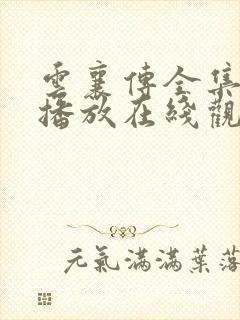 雲襄傳全集
播放在綫觀
元氣滿滿葉落